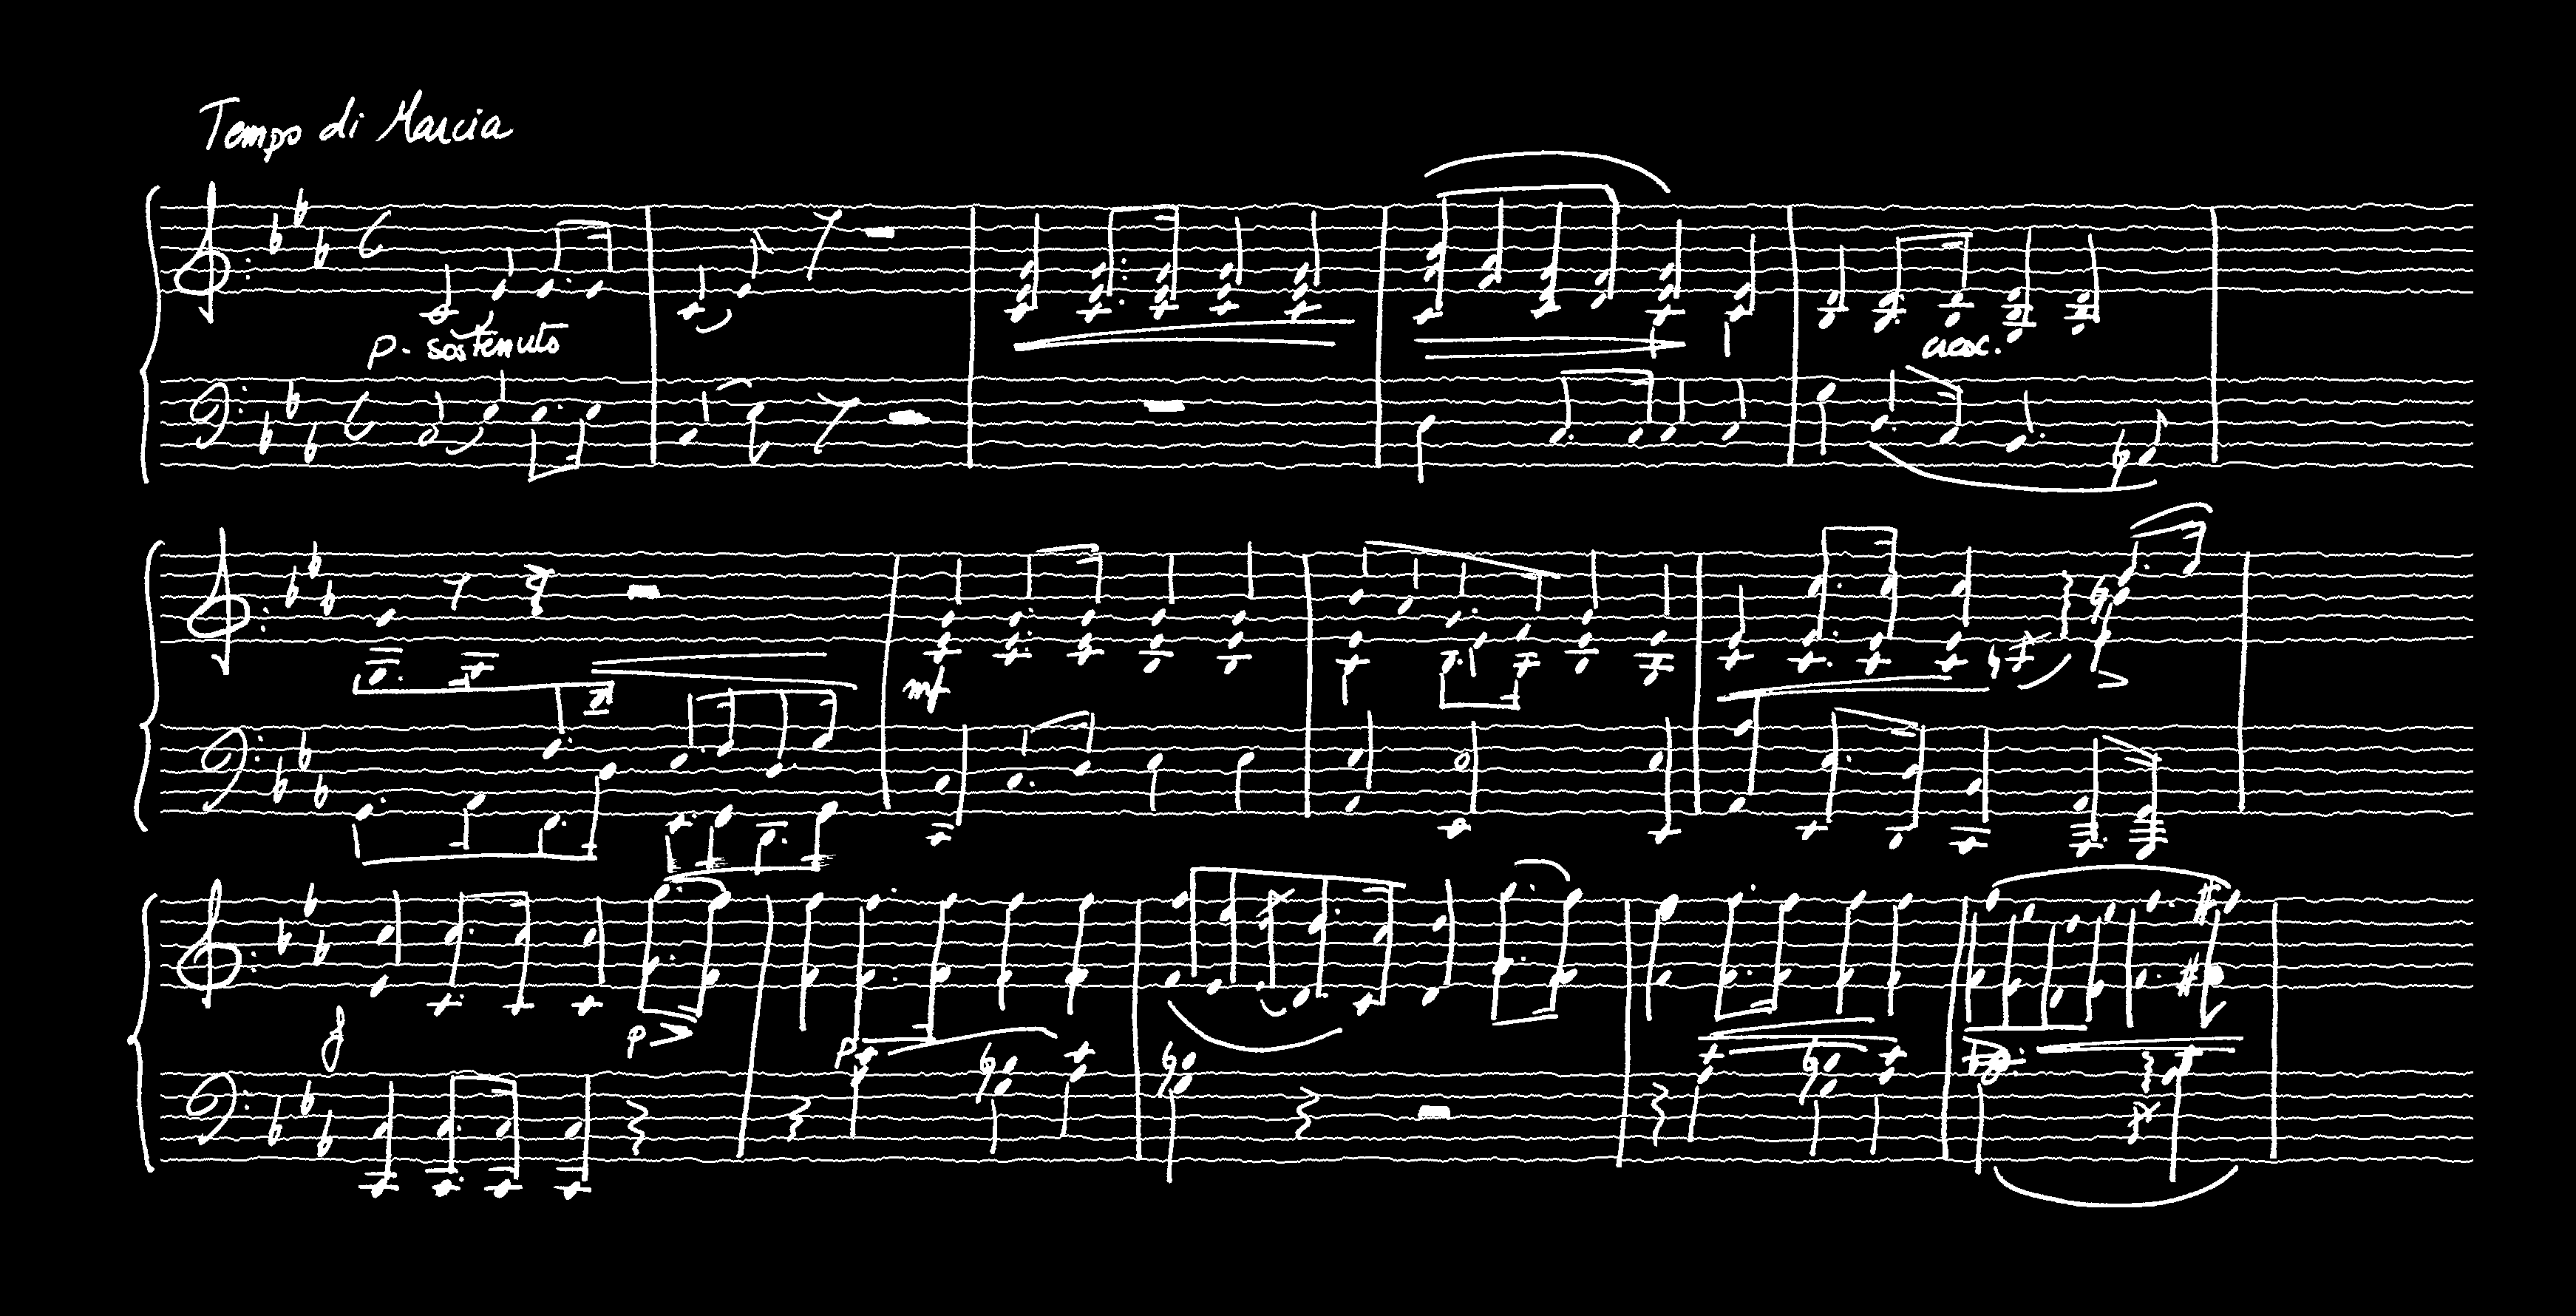 Tempo di Marcia
p - sostenuto
cresc.
mf
f
p
p
p